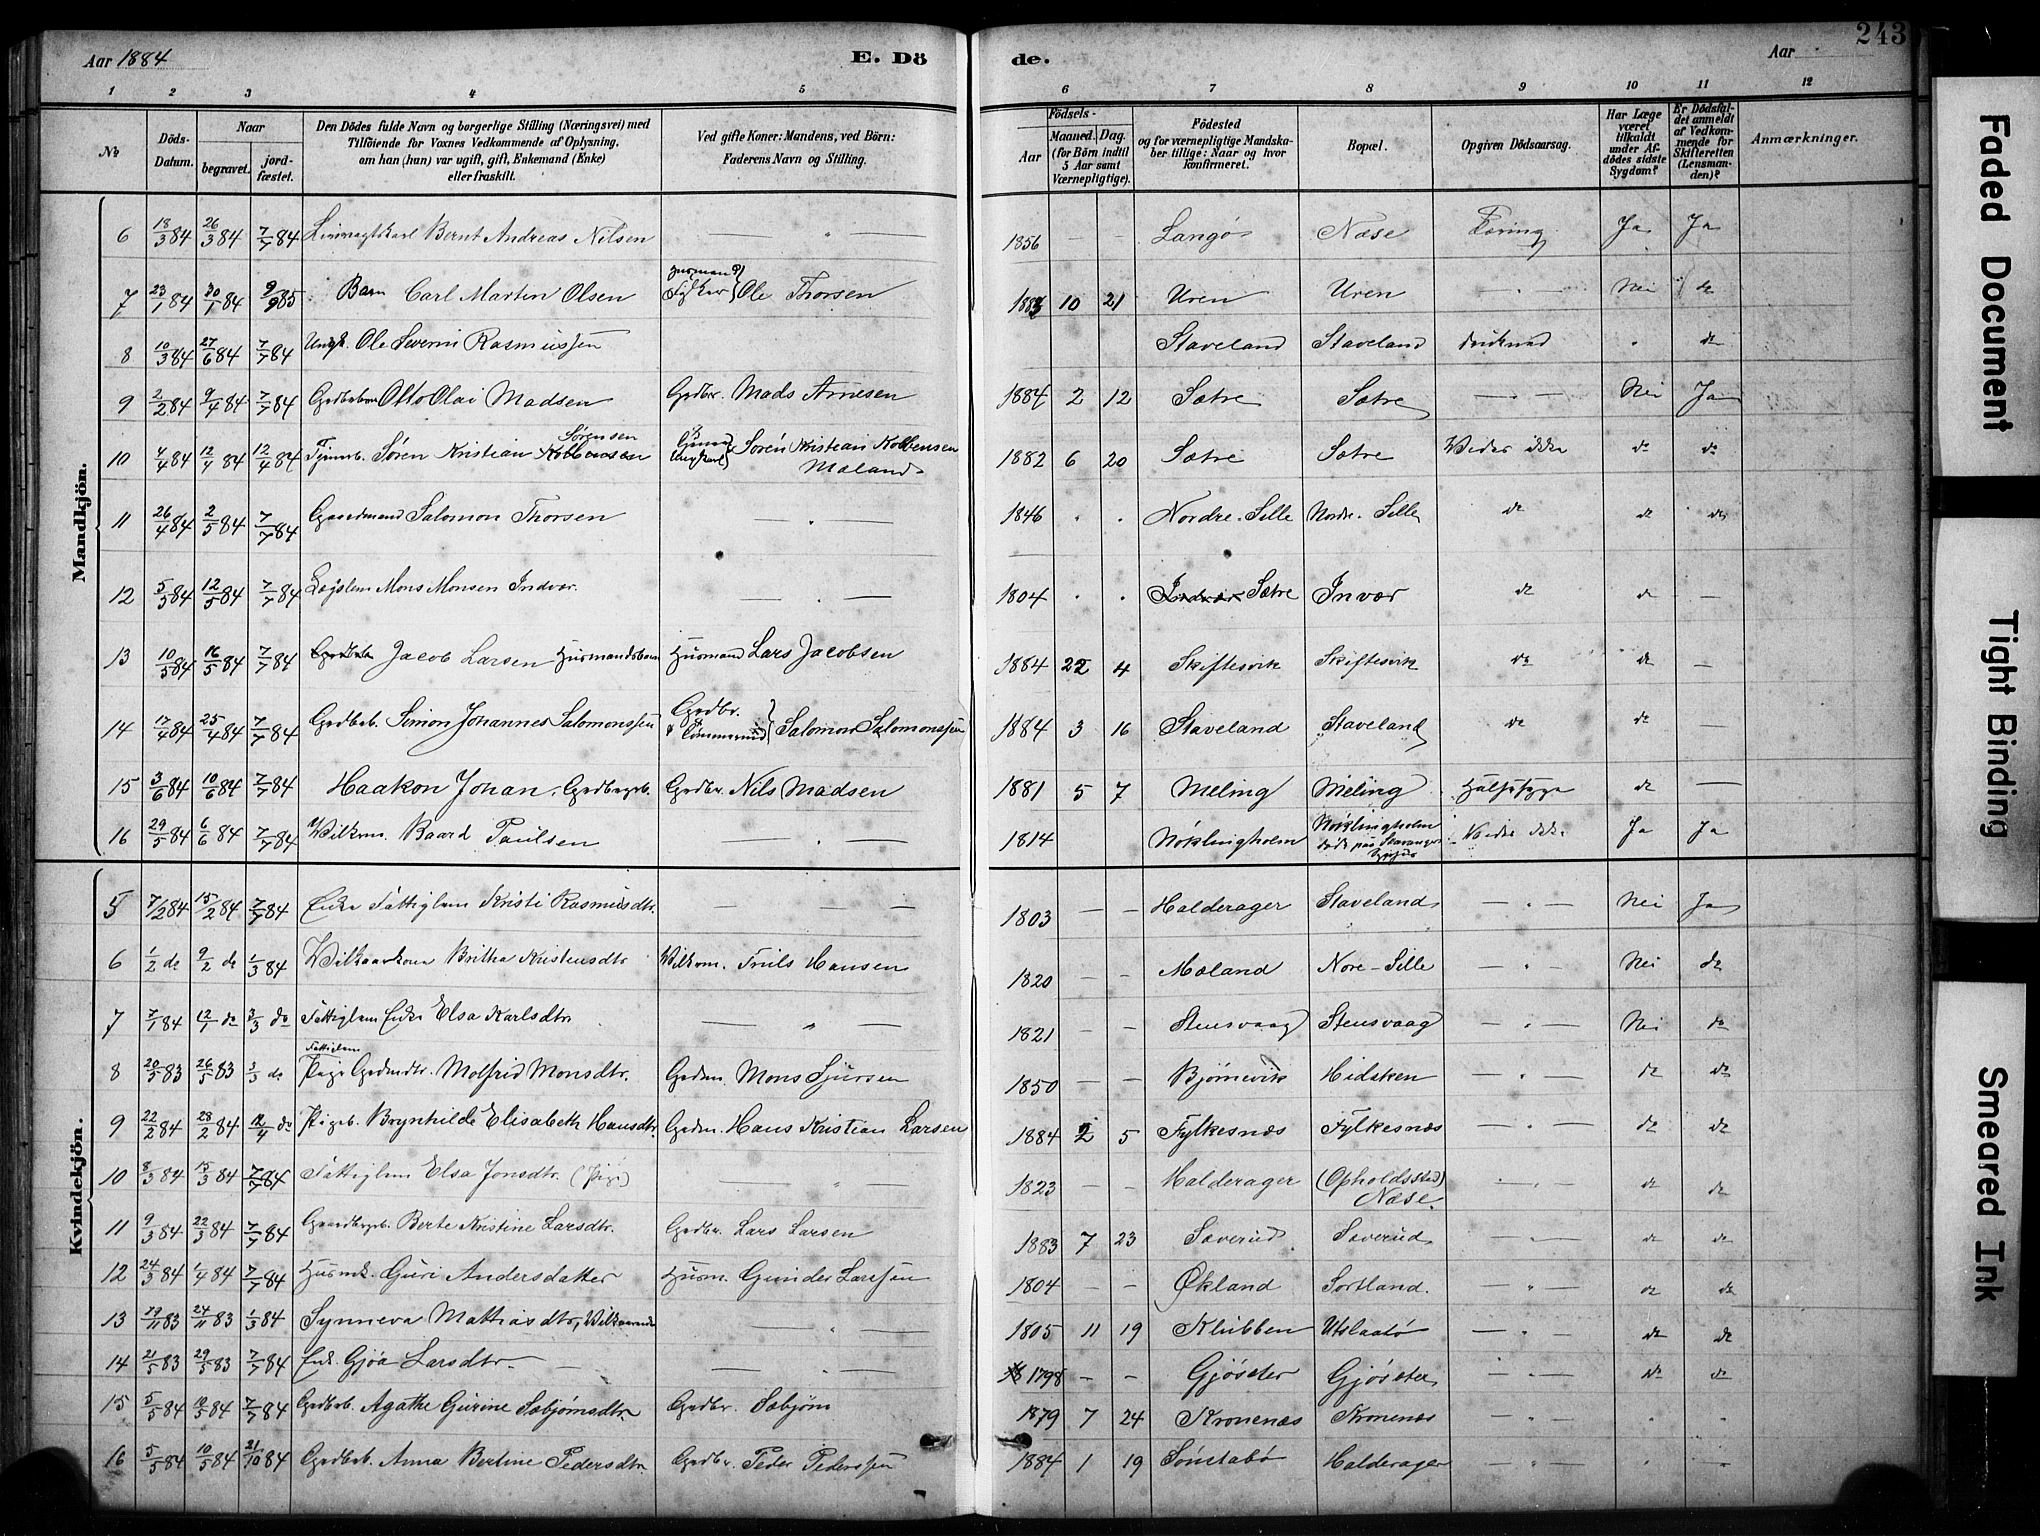 Aar 1884 E. Dö de. Aar 243
1 2 3 4 5 6 7 8 9 10 11 12
№ Döds-Datum. Naar begravet. jord-fæstet. Den Dödes fulde Navn og borgerlige Stilling (Næringsvei) med Tilföiende for Voxnes Vedkommende af Oplysning, om han (hun) var ugift, gift, Enkemand (Enke) eller fraskilt. Ved gifte Koner: Mandens, ved Börn: Faderens Navn og Stilling. Födsels- Aar Maaned. Dag. (for Börn indtil 5 Aar samt Værnepligtige). Födested og for værnepligtige Mandskaber tillige: Naar og hvor konfirmeret. Bopæl. Opgiven Dödsaarsag. Har Læge været tilkaldt under Afdödes sidste Sygdom? Er Dödsfaldet anmeldt af Vedkommende for Skifteretten (Lensmanden)? Anmærkninger.
Mandkjön.
6 18/3 84 26/3 84 7/7 84 Bernt Andreas Nilsen — " — 1856 — — Langø Næse Tæring Ja Ja
7 23/1 84 30/1 84 9/9 85 Barn Carl Martin Olsen Husmand Fisker Ole Thorsen 1883 10 21 Uren Uren — " — Nei do
8 10/3 84 27/6 84 7/7 84 Ungk. Ole Severin Rasmussen Staveland Staveland druknet " do
9 2/2 84 9/4 84 7/7 84 Otto Olai Madsen Grdbr. Mads Arnesen 1884 2 12 Sætre Sætre — " — Nei Ja
10 4/4 84 12/4 84 12/4 84 Søren Kristian Kolbensen Sørensen Søren Kristian Kolbensen Mæland 1882 6 20 Sætre Sætre Vedes ikke do do
11 26/4 84 2/5 84 7/7 84 Gaardmand Salomon Thorsen — " — 1846 " " Nordre-Sille Nordre-Sille do do do
12 5/5 84 12/5 84 7/7 84 Lægslem Mons Monsen Indvær. — " — 1804 " " Indvær Sætre Invær do do —
13 10/5 84 16/5 84 7/7 84 Jacob Larsen Husmandsbarn Husmand Lars Jacobsen 1884 22 4 Skiftesvik Skiftesvik do do —
14 17/4 84 25/4 84 7/7 84 Grdbrb. Simon Johannes Salomonssen Grdbr. & Salomon Salomonssen 1884 3 16 Staveland Staveland do do —
15 3/6 84 10/6 84 7/7 84 Haakon Johan. Grdbrgrb. Grdbr. Nils Madsen 1881 5 7 Meling Meling Halssyge do —
16 29/5 84 6/6 84 7/7 84 Vilkm. Baard Paulsen — " — 1814 Nøklingholm Nøklingholm døde paa Stavanger Sygehus Vedes ikke Ja Ja
Kvindekjön.
5 7/2 84 15/2 84 7/7 84 Enke Fattiglem Kristi Rasmusdtr. — — — 1803 — — Halderager Staveland — " — Nei Ja
6 1/2 do 9/2 do 1/3 84 Vilkaarkone Britha Kristensdtr Vilkm. Truls Hansen 1820 — — Mæland Nore-Sille — " — Nei do
7 7/1 84 12/1 do 3/3 do Fattiglem Enke Elsa Karlsdtr — " — 1821 — — Stensvaag Stensvaag — " — Nei do
8 20/5 83 26/5 83 3/3 do Fattiglem Pige Grdmdtr. Molfrid Monsdtr. Grdm. Mons Sjursen 1850 — — Bjørnevik Hidsken — " — do do
9 22/2 84 28/2 84 12/4 do Pigeb. Brynhilde Elisabeth Hansdtr. Grdm. Hans Kristian Larsen 1884 2 5 Fylkesnæs Fylkesnæs — " — do do
10 8/3 84 15/3 84 7/7 84 Fattiglem Elsa Jonsdtr. (Pige) — " — 1823 — — Halderager (Opholdssted) Næse. — " — do do
11 9/3 84 22/3 84 7/7 84 Berte Kristine Larsdtr. Grdbr. Lars Larsen 1883 7 23 Sæverud Sæverud — " — do do
12 24/3 84 1/4 84 7/7 84 Husmk. Guri Andersdatter Husm. Gunder Larssen 1804 — — Økland Sortland — " — do do
13 19/11 83 24/11 83 1/3 84 Synneva Mattiasdtr, — " — 1805 11 19 Klubben Utslaatø — " — do do
14 21/5 83 29/5 83 7/7 84 Enk. Gjøa Larsdtr. — " — 1798 — — Gjøseter Gjøseter — " — do do
15 5/5 84 12/5 84 7/7 84 Grdbrb. Agathe Gurine Sæbjørnsdtr Grdbr. Sæbjørn 1879 7 24 Kronenæs Kronenæs — " — " "
16 5/5 84 10/5 84 21/10 84 Grdbrb. Anna Bertine Pedersdtr Grdbr. Peder Pederssen 1884 1 19 Sønstabø Halderager — " — " —
Faded Document
Tight Binding
Smeared Ink